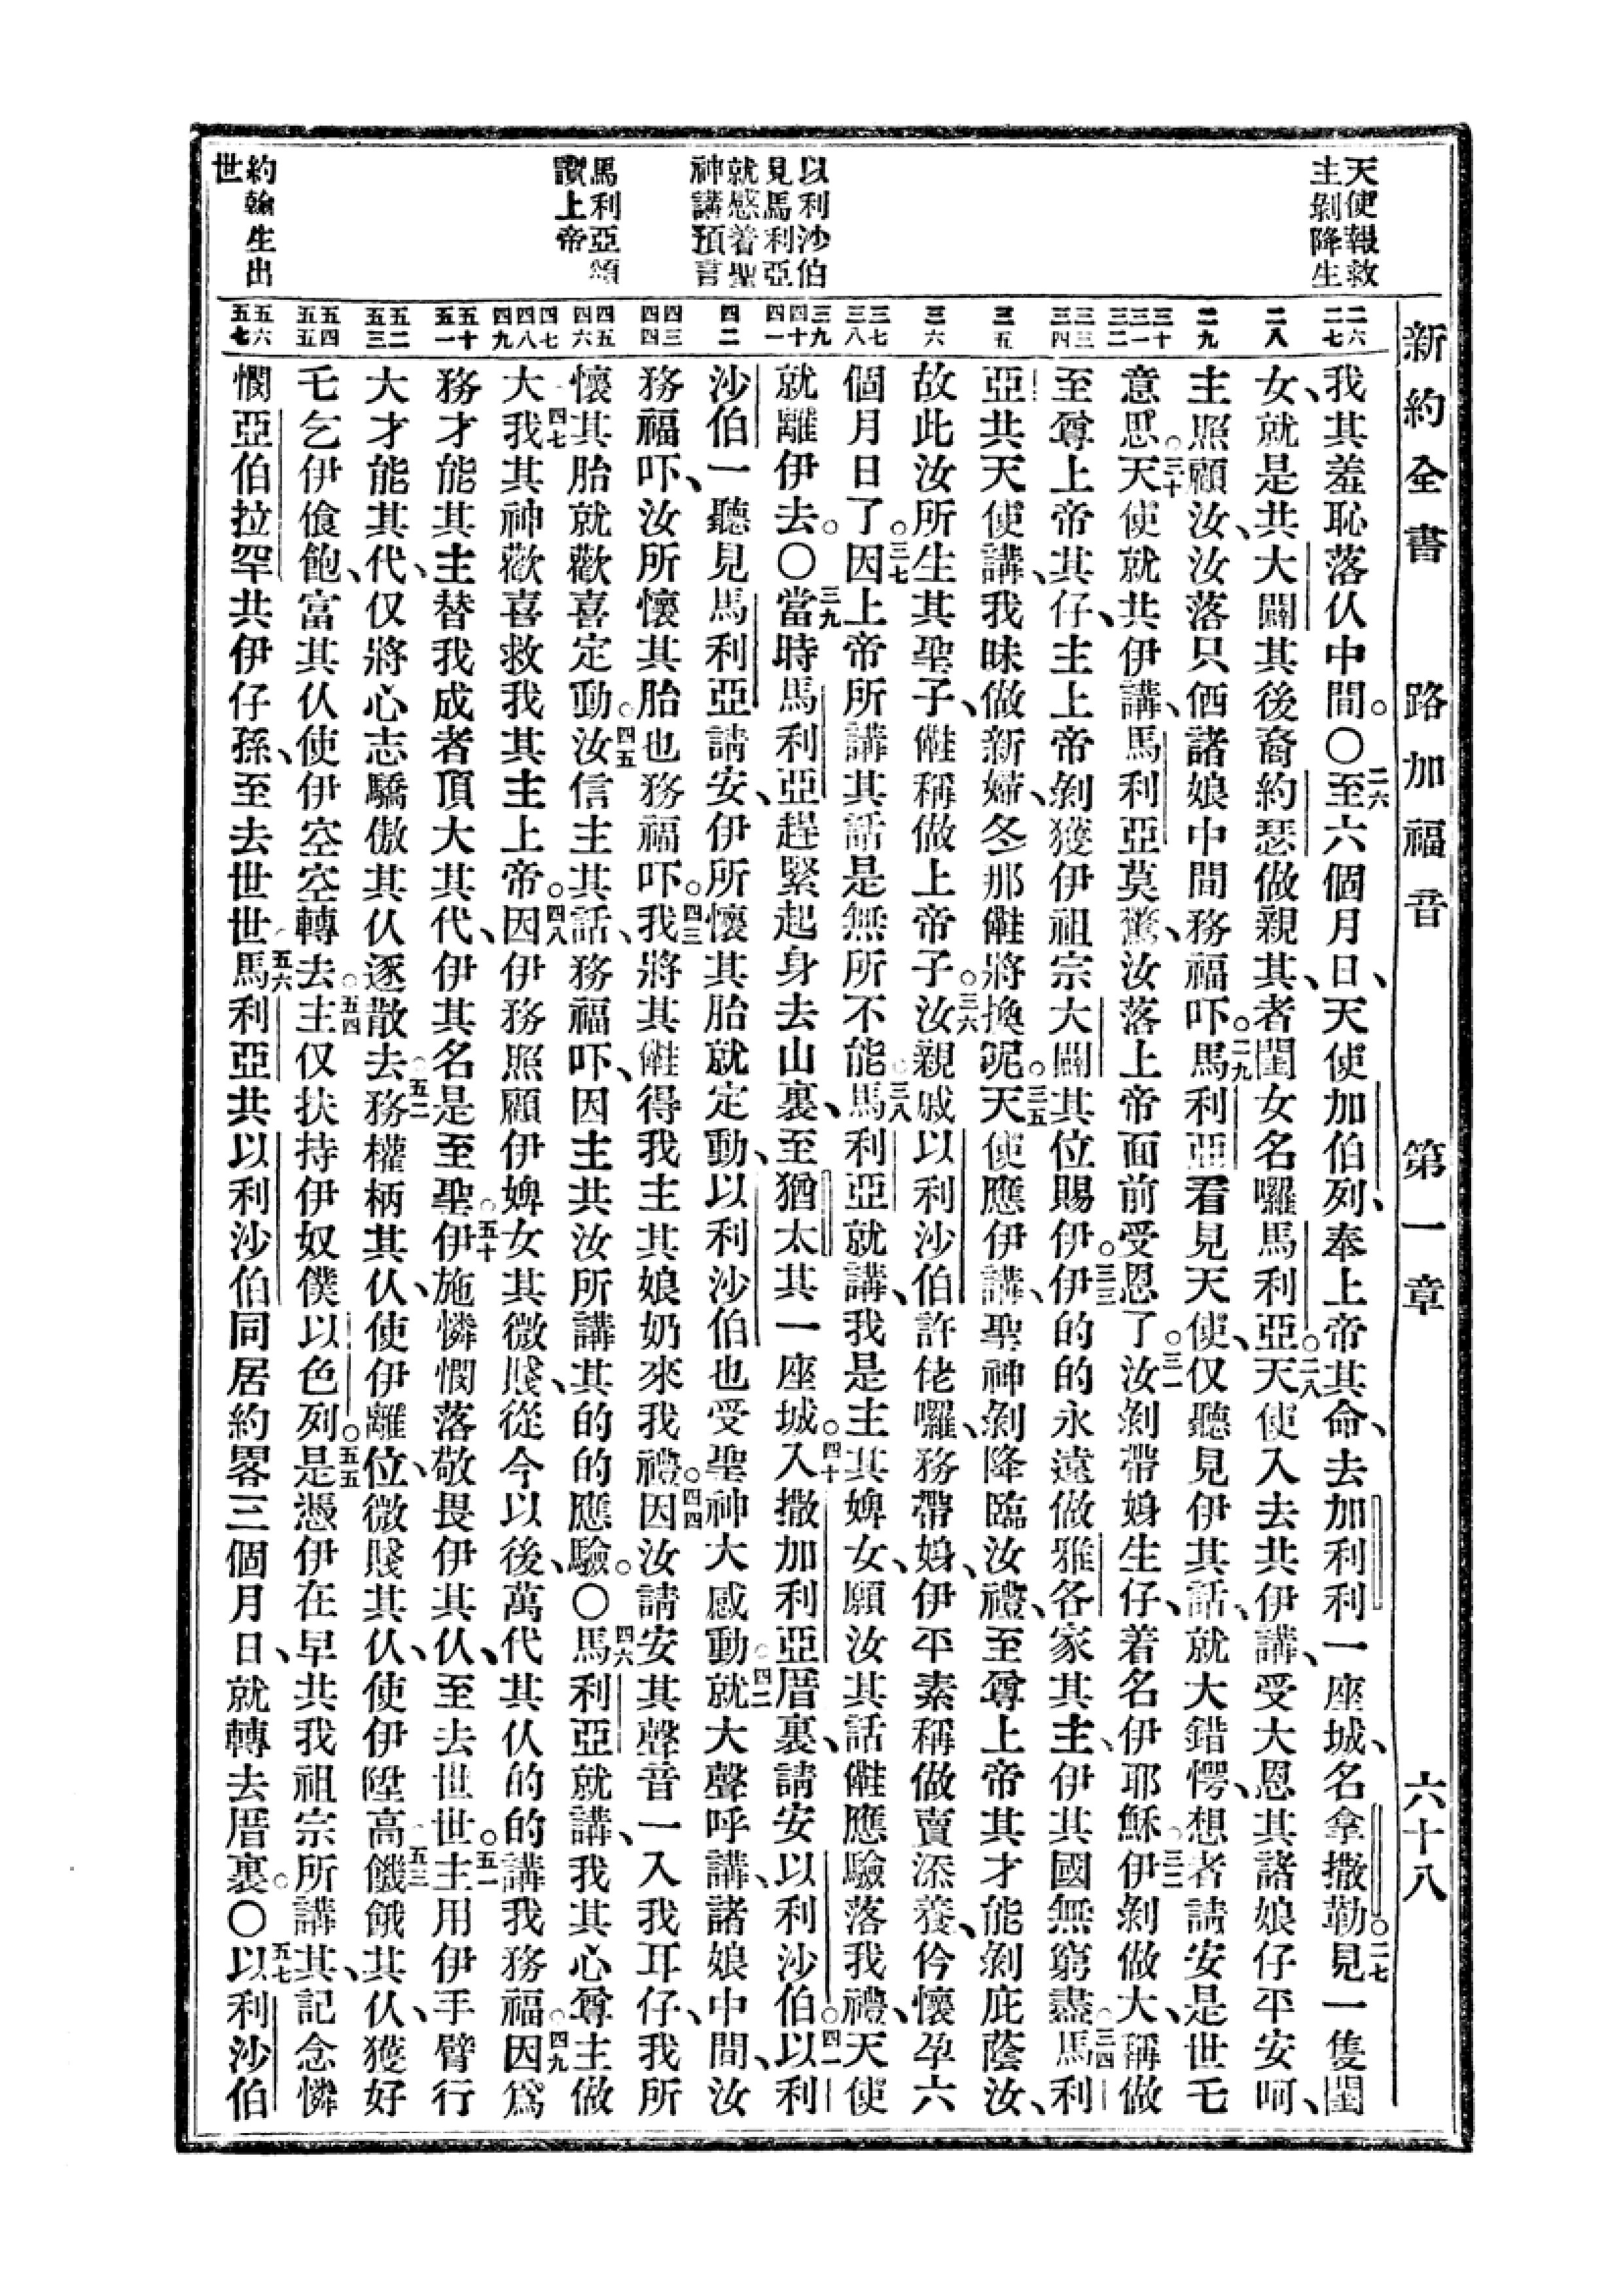 新約全書 路加福音 第一章 六十八
天使報救
主剝降生
以利沙伯
見馬利亞
就感着聖
神講預言
馬利亞頌
讚上帝
約翰生出
世
二六
二七
二八
二九
三十
三一
三二
三三
三四
三五
三六
三七
三八
三九
四十
四一
四二
四三
四四
四五
四六
四七
四八
四九
五十
五一
五二
五三
五四
五五
五六
五七
我其羞恥落仈中間。〇二六至六個月日、天使加伯列、奉上帝其命、去加利利一座城、名拿撒勒。二七見一隻閨
女、就是共大闢其後裔約瑟做親其、者閨女名囉馬利亞。二八天使入去共伊講、受大恩其諸娘仔平安呵、
主照顧汝、汝落只〿諸娘中間務福吓。二九馬利亞看見天使、仅聽見伊其話、就大錯愕、想者請安是世乇
意思。三十天使就共伊講、馬利亞莫驚、汝落上帝面前受恩了。三一汝剝帶娒生仔、着名伊耶穌。三二伊剝做大、稱做
至尊上帝其仔、主上帝剝獲伊祖宗大闢其位賜伊。三三伊的的永遠做雅各家其主、伊其國無窮盡。三四馬利
亞共天使講、我昧做新婦、冬那𣍐將換呢。三五天使應伊講、聖神剝降臨汝禮、至尊上帝其才能剝庇蔭汝、
故此汝所生其聖子、𠆧稱做上帝子。三六汝親戚以利沙伯、許佬囉、務帶娒、伊平素稱做賣添養、仱懷孕六
個月日了。三七因上帝所講其話是無所不能。三八馬利亞就講、我是主其婢女、願汝其話𠆧應驗落我禮、天使
就離伊去。〇三九當時馬利亞、趕緊起身去山裏、至猶太其一座城。四十入撒加利亞厝裏、請安以利沙伯。四一以利
沙伯一聽見馬利亞請安、伊所懷其胎就定動、以利沙伯也受聖神大感動。四二就大聲呼講、諸娘中間、汝
務福吓、汝所懷其胎也務福吓。四三我將其𠆧得我主其娘奶來我禮。四四因汝請安其聲音一入我耳仔、我所
懷其胎就歡喜定動。四五汝信主其話、務福吓、因主共汝所講其的的應驗。〇四六馬利亞就講、我其心尊主做
大、四七我其神歡喜救我其主上帝。四八因伊務照顧伊婢女其微賤、從今以後、萬代其仈的的講我務福。四九因爲
務才能其主替我成者頂大其代、伊其名是至聖。五十伊施憐憫落敬畏伊其仈、至去世世。五一主用伊手臂行
大才能其代、仅將心志驕傲其仈逐散去。五二務權柄其仈、使伊離位、微賤其仈、使伊陞高。五三饑餓其仈、獲好
乇乞伊飧飽、富其仈使伊空空轉去。五四主仅扶持伊奴僕以色列。五五是憑伊在早共我祖宗所講其、記念憐
憫亞伯拉罕共伊仔孫、至去世世。五六馬利亞共以利沙伯同居約畧三個月日、就轉去厝裏。〇五七以利沙伯